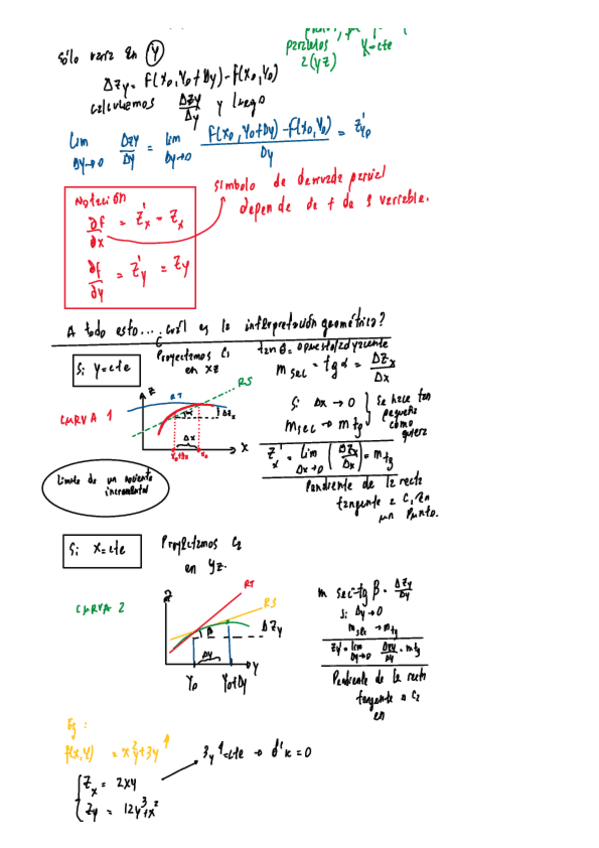 paralelos x=cte
a (yz)
Sólo varía en y
Δzy = f(x0, y0+Dy) - f(x0, y0)
calculemos Δzy/Δy y luego
lim Dy→0 Δzy/Δy = lim Dy→0 (f(x0, y0+Dy) - f(x0, y0))/Dy = z'y0
Notación
símbolo de derivada parcial
∂f/∂x = z'x = zx
depende de + de 1 variable.
∂f/∂y = z'y = zy
A todo esto.... cuál es la interpretación geométrica?
Si y=cte
Proyectamos C1
en xz
tan θ = opuesto/adyacente
m sec = tg α = Δzx/Δx
z
RT
RS
CURVA 1
Δzx
Δx
x
Si Δx → 0
msec → mtg
se hace tan
pequeño
como
quiera
z'x = lim Δx→0 (Δzx/Δx) = mtg
Pendiente de la recta
tangente a C1 en
un punto.
Límite de un cociente
incremental
Si x=cte
Proyectamos C2
en yz.
CURVA 2
z
RT
RS
β
Δzy
Δy
y0
y0+Dy
y
m sec = tg β = Δzy/Δy
Si Dy → 0
msec → mtg
zy' = lim Dy→0 Δzy/Δy = mtg
Pendiente de la recta
tangente a C2
en
Eg:
f(x,y) = x²y+3y⁴
3y⁴=cte → d'x=0
zx = 2xy
zy = 12y³+x²